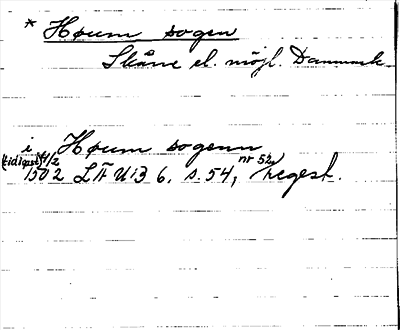 * Høum sogen
Skåne el. möjl. Danmark
i Høum sogenn
(tidigast) 4/2
1502 LÄUB 6, s. 54, nr 52, regest.